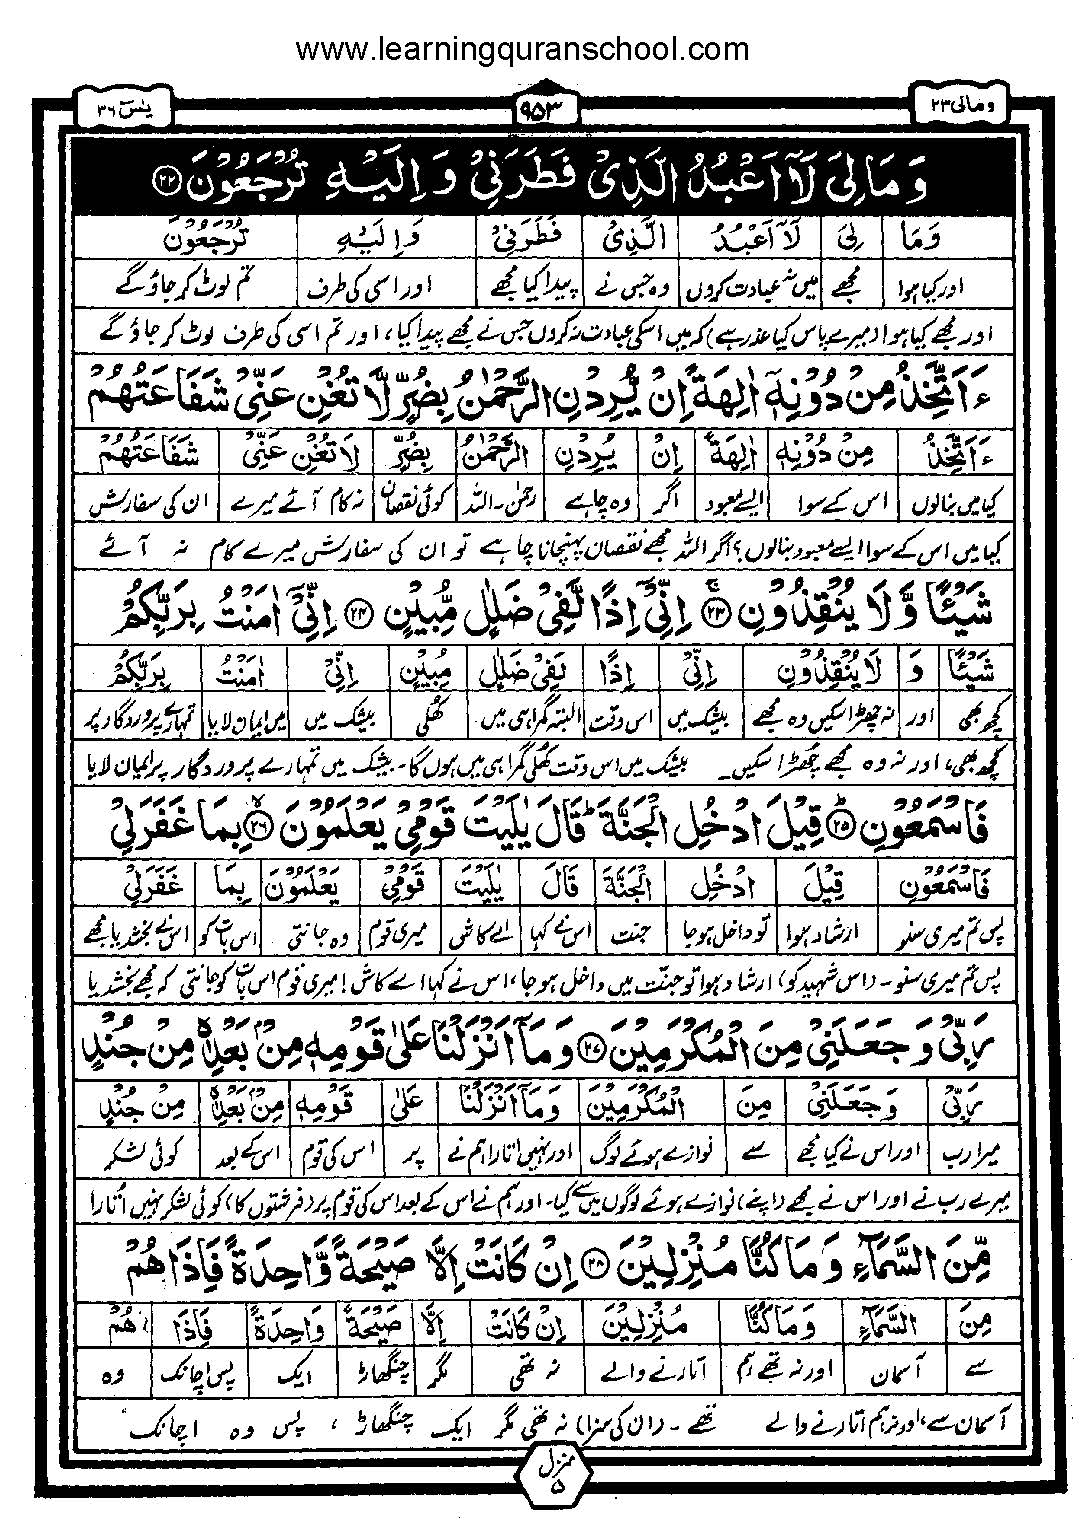 www.learningquranschool.com
ومالی ۲۳
۹۵۳
یٰسٓ ۳۶
وَمَالِیَ لَاۤ اَعْبُدُ الَّذِیْ فَطَرَنِیْ وَاِلَیْہِ تُرْجَعُوْنَ ﴿۲۲﴾
وَمَا لِیَ لَاۤ اَعْبُدُ الَّذِیْ فَطَرَنِیْ وَاِلَیْہِ تُرْجَعُوْنَ
اور کیا ہوا مجھے میں نہ عبادت کروں وہ جس نے پیدا کیا مجھے اور اسی کی طرف تم لوٹ کر جاؤ گے
اور مجھے کیا ہوا (میرے پاس کیا عذر ہے) کہ میں اسکی عبادت نہ کروں جس نے مجھے پیدا کیا، اور تم اسی کی طرف لوٹ کر جاؤ گے
ءَاَتَّخِذُ مِنْ دُوْنِہٖۤ اٰلِھَۃً اِنْ یُّرِدْنِ الرَّحْمٰنُ بِضُرٍّ لَّا تُغْنِ عَنِّیْ شَفَاعَتُھُمْ
ءَاَتَّخِذُ مِنْ دُوْنِہٖۤ اٰلِھَۃً اِنْ یُرِدْنِ الرَّحْمٰنُ بِضُرٍّ لَا تُغْنِ عَنِّیْ شَفَاعَتُھُمْ
کیا میں بنالوں اس کے سوا ایسے معبود اگر وہ چاہے رحمٰن۔اللہ کوئی نقصان نہ کام آئے میرے ان کی سفارش
کیا میں اس کے سوا ایسے معبود بنالوں؟ اگر اللہ مجھے نقصان پہنچانا چاہے تو ان کی سفارش میرے کام نہ آئے
شَیْـًٔا وَّلَا یُنْقِذُوْنِ ﴿۲۳﴾ اِنِّیْۤ اِذًا لَّفِیْ ضَلٰلٍ مُّبِیْنٍ ﴿۲۴﴾ اِنِّیْۤ اٰمَنْتُ بِرَبِّکُمْ
شَیْـًٔا وَ لَا یُنْقِذُوْنِ اِنِّیْۤ اِذًا لَفِیْ ضَلٰلٍ مُبِیْنٍ اِنِّیْۤ اٰمَنْتُ بِرَبِّکُمْ
کچھ بھی اور نہ چھڑا سکیں وہ مجھے بیشک میں اس وقت البتہ گمراہی میں کھلی بیشک میں میں ایمان لایا تمہارے پروردگار پر
کچھ بھی، اور نہ وہ مجھے چھڑا سکیں۔ بیشک میں اس وقت کھلی گمراہی میں ہوں گا۔ بیشک میں تمہارے پروردگار پر ایمان لایا
فَاسْمَعُوْنِ ﴿۲۵﴾ قِیْلَ ادْخُلِ الْجَنَّۃَ قَالَ یٰلَیْتَ قَوْمِیْ یَعْلَمُوْنَ ﴿۲۶﴾ بِمَا غَفَرَلِیْ
فَاسْمَعُوْنِ قِیْلَ ادْخُلِ الْجَنَّۃَ قَالَ یٰلَیْتَ قَوْمِیْ یَعْلَمُوْنَ بِمَا غَفَرَلِیْ
پس تم میری سنو ارشاد ہوا تو داخل ہوجا جنت اس نے کہا اے کاش میری قوم وہ جانتی اس بات کو اس نے بخش دیا مجھے
پس تم میری سنو۔ (اس شہید کو) ارشاد ہوا تو جنت میں داخل ہوجا، اس نے کہا اے کاش! میری قوم اس بات کو جانتی کہ مجھے بخش دیا
رَبِّیْ وَجَعَلَنِیْ مِنَ الْمُکْرَمِیْنَ ﴿۲۷﴾ وَمَاۤ اَنْزَلْنَا عَلٰی قَوْمِہٖ مِنْۢ بَعْدِہٖ مِنْ جُنْدٍ
رَبِّیْ وَجَعَلَنِیْ مِنَ الْمُکْرَمِیْنَ وَمَاۤ اَنْزَلْنَا عَلٰی قَوْمِہٖ مِنْۢ بَعْدِہٖ مِنْ جُنْدٍ
میرا رب اور اس نے کیا مجھے سے نوازے ہوئے لوگ اور نہیں اتارا ہم نے پر اس کی قوم اس کے بعد کوئی لشکر
میرے رب نے اور اس نے مجھے (اپنے) نوازے ہوئے لوگوں میں سے کیا۔ اور ہم نے اس کے بعد اس کی قوم پر (فرشتوں کا) کوئی لشکر نہیں اُتارا
مِّنَ السَّمَآءِ وَمَا کُنَّا مُنْزِلِیْنَ ﴿۲۸﴾ اِنْ کَانَتْ اِلَّا صَیْحَۃً وَّاحِدَۃً فَاِذَا ھُمْ
مِنَ السَّمَآءِ وَمَا کُنَّا مُنْزِلِیْنَ اِنْ کَانَتْ اِلَّا صَیْحَۃً وَاحِدَۃً فَاِذَا ھُمْ
سے آسمان اور نہ تھے ہم اتارنے والے نہ تھی مگر چنگھاڑ ایک پس اچانک وہ
آسمان سے، اور نہ ہم اتارنے والے تھے۔ (ان کی سزا) نہ تھی مگر ایک چنگھاڑ، پس وہ اچانک
منزل ۵